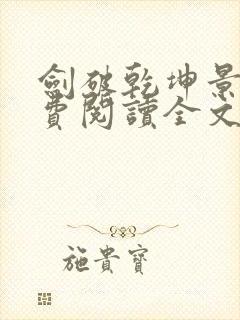 劍破乾坤景
費閱讀全文
施貴寶